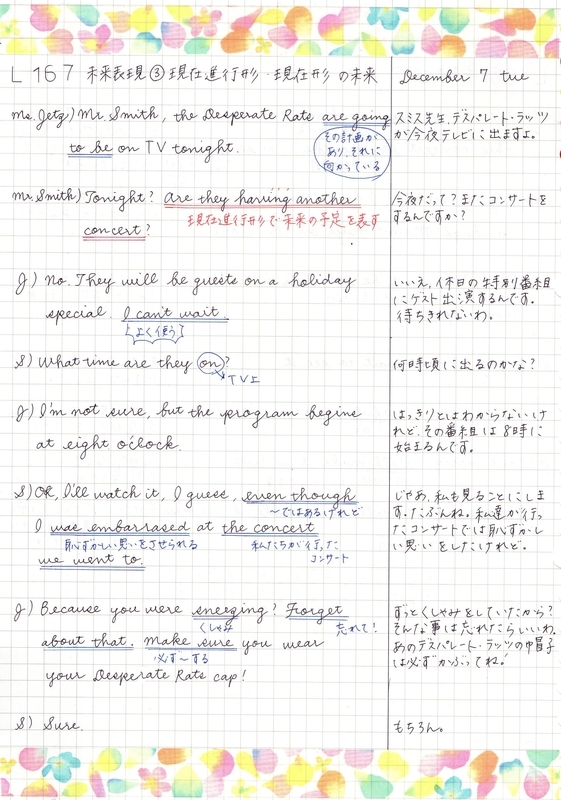 L 167 未来表現③現在進行形・現在形の未来 December 7 tue
Ms. Jetz) Mr. Smith, the Desperate Rats are going
to be on TV tonight.
その計画が
あり、それに
向かっている
スミス先生、デスパレート・ラッツ
が今夜テレビに出ますよ。
Mr. Smith) Tonight? Are they having another
現在進行形で未来の予定を表す
concert?
今夜だって?またコンサートを
するんですか?
J) No. They will be guests on a holiday
special. I can't wait.
よく使う
いいえ、休日の特別番組
にゲスト出演するんです。
待ちきれないわ。
S) What time are they on?
TV上
何時頃に出るのかな?
J) I'm not sure, but the program begins
at eight o'clock.
はっきりとはわからないけ
れど、その番組は8時に
始まるんです。
S) OK, I'll watch it, I guess, even though
〜ではあるけれど
I was embarrased at the concert
恥ずかしい思いをさせられる 私たちが行った
コンサート
we went to.
じゃあ、私も見ることにしま
す。たぶんね。私達が行っ
たコンサートでは恥ずかし
い思いをしたけれど。
J) Because you were sneezing? Forget
くしゃみ 忘れて!
about that. Make sure you wear
必ず〜する
your Desperate Rats cap!
ずっとくしゃみをしていたから?
そんな事は忘れたらいいわ。
あのデスパレート・ラッツの帽子
は必ずかぶってね!
S) Sure.
もちろん。